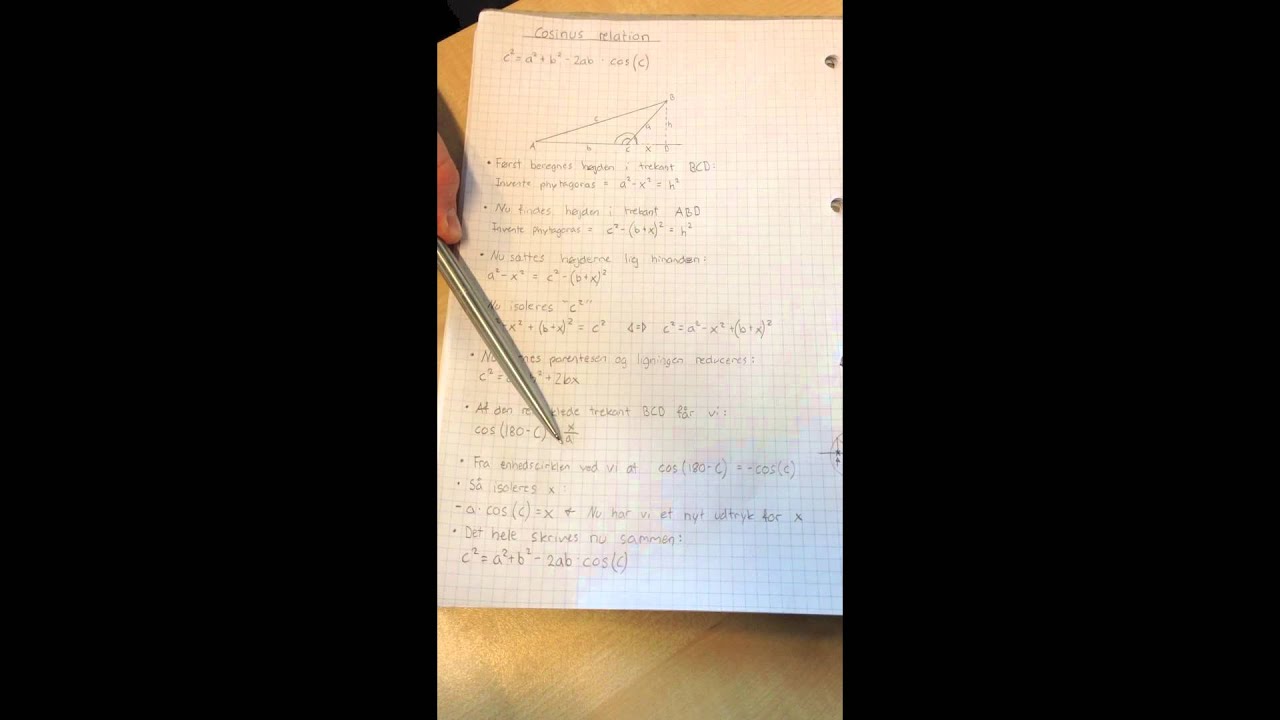 Cosinus relation
c² = a² + b² - 2ab · cos(C)
B
c
a
h
A
b
C
x
D
• Først beregnes højden i trekant BCD:
Invente phytagoras = a² - x² = h²
• Nu findes højden i trekant ABD
Invente phytagoras = c² - (b+x)² = h²
• Nu sættes højderne lig hinanden:
a² - x² = c² - (b+x)²
Nu isoleres "c²"
x² + (b+x)² = c² <=> c² = a² - x² + (b+x)²
• parentesen og ligningen reduceres:
c² = + 2bx
• Af den trekant BCD får vi:
cos(180-C) x/a
• Fra enhedscirklen ved vi at cos(180-C) = -cos(C)
• Så isoleres x:
-a · cos(C) = x ← Nu har vi et nyt udtryk for x
• Det hele skrives nu sammen:
c² = a² + b² - 2ab · cos(C)